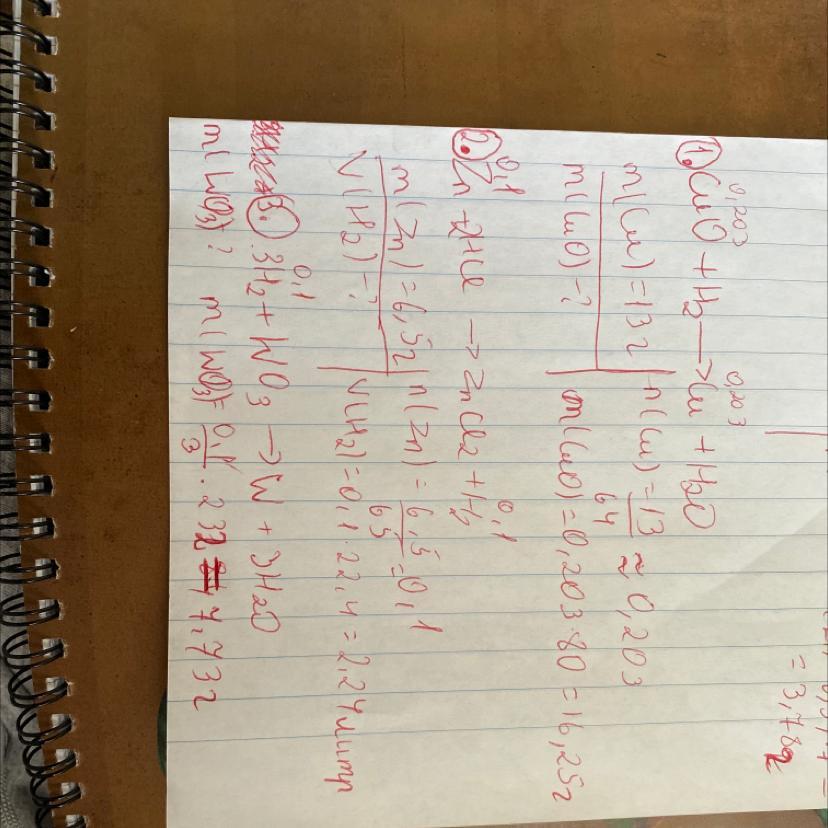 = 3,78г
0,203 0,203
1. CuO + H₂ → Cu + H₂O
m(Cu) = 13г n(Cu) = 13/64 ≈ 0,203
m(CuO) - ? m(CuO) = 0,203·80 = 16,25г
0,1 0,1
2. Zn + 2HCl → ZnCl₂ + H₂
m(Zn) = 6,5г n(Zn) = 6,5/65 = 0,1
V(H₂) = ? V(H₂) = 0,1·22,4 = 2,24 литр
0,1
3. 3H₂ + WO₃ → W + 3H₂O
m(WO₃)? m(WO₃) = 0,1/3 · 232 = 7,73г